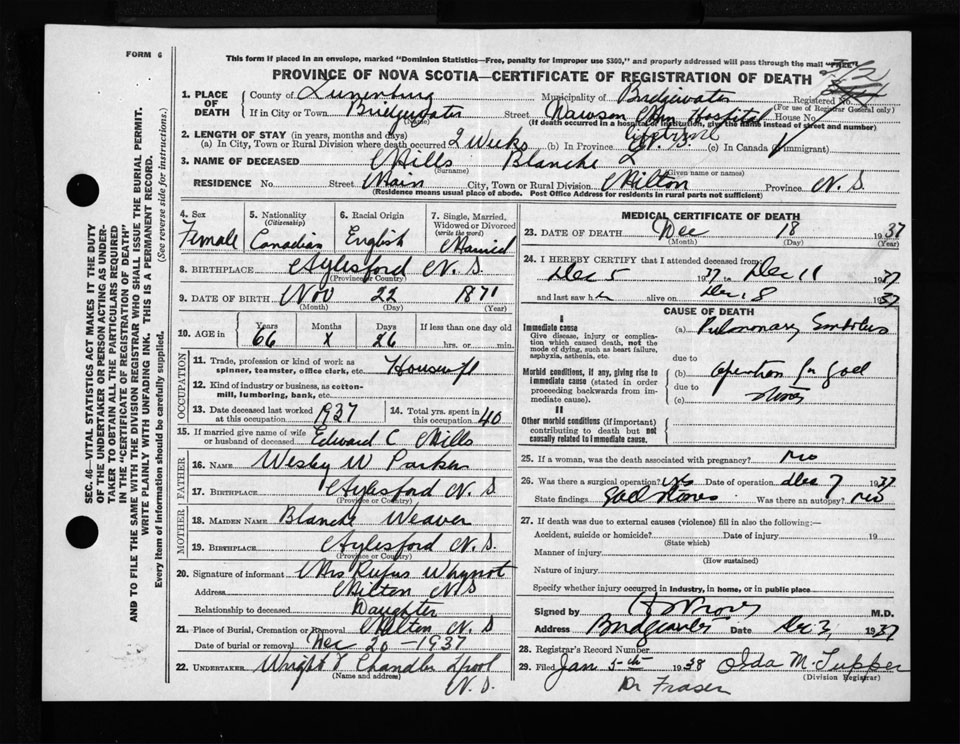 FORM 6
This form if placed in an envelope, marked "Dominion Statistics—Free, penalty for improper use $300," and properly addressed will pass through the mail "FREE"
PROVINCE OF NOVA SCOTIA—CERTIFICATE OF REGISTRATION OF DEATH
1. PLACE OF DEATH
County of Lunenburg Municipality of Bridgewater Registered No.
(For use of Registrar General only)
If in City or Town Bridgewater Street Dawson Hospital House No.
(Name) (If death occurred in a hospital or institution, give the name instead of street and number)
2. LENGTH OF STAY (in years, months and days)
(a) In City, Town or Rural Division where death occurred 2 Weeks (b) In Province (c) In Canada (if immigrant)
3. NAME OF DECEASED Mills Blanche L
(Surname) (Given name or names)
RESIDENCE No. Street Main City, Town or Rural Division Milton Province N. S.
(Residence means usual place of abode. Post Office Address for residents in rural parts not sufficient)
4. Sex
Female
5. Nationality
(Citizenship)
Canadian
6. Racial Origin
English
7. Single, Married, Widowed or Divorced
(write the word)
Married
8. BIRTHPLACE Aylesford N. S.
(Province or Country)
9. DATE OF BIRTH Nov 22 1871
(Month) (Day) (Year)
10. AGE in Years 66 Months X Days 26 If less than one day old
hrs. or min.
OCCUPATION
11. Trade, profession or kind of work as spinner, teamster, office clerk, etc. Housewife
12. Kind of industry or business, as cotton-mill, lumbering, bank, etc.
13. Date deceased last worked at this occupation 1937 14. Total yrs. spent in this occupation 40
15. If married give name of wife or husband of deceased Edward C Mills
FATHER
16. NAME Wesley W Parker
17. BIRTHPLACE Aylesford N. S.
(Province or Country)
MOTHER
18. MAIDEN NAME Blanche Weaver
19. BIRTHPLACE Aylesford N. S.
(Province or Country)
20. Signature of informant Mrs Rufus Whynot
Address Milton N S
Relationship to deceased Daughter
21. Place of Burial, Cremation or Removal Milton N S
Date of burial or removal Dec 20 - 1937
22. UNDERTAKER Wright & Chandler Lpool
(Name and address) N. S.
MEDICAL CERTIFICATE OF DEATH
23. DATE OF DEATH Dec 18 1937
(Month) (Day) (Year)
24. I HEREBY CERTIFY that I attended deceased from:
Dec 5 1937 to Dec 11 1937
and last saw h alive on Dec 18 1937
CAUSE OF DEATH
I
Immediate cause
Give disease, injury or complication which caused death, not the mode of dying, such as heart failure, asphyxia, asthenia, etc.
(a) Pulmonary Embolus
due to
Morbid conditions, if any, giving rise to immediate cause (stated in order proceeding backwards from immediate cause).
(b) operation for gall
due to stones
(c)
II
Other morbid conditions (if important) contributing to death but not causally related to immediate cause.
25. If a woman, was the death associated with pregnancy? no
26. Was there a surgical operation? Date of operation Dec 7 1937
State findings Gall stones Was there an autopsy? no
27. If death was due to external causes (violence) fill in also the following:—
Accident, suicide or homicide? Date of injury 19
(State which)
Manner of injury
(How sustained)
Nature of injury
Specify whether injury occurred in industry, in home, or in public place
Signed by M.D.
Address Bridgewater Date 1937
28. Registrar's Record Number
29. Filed Jan 5th 1938 Ida M. Tupper
(Division Registrar)
Dr Fraser
SEC. 46—VITAL STATISTICS ACT MAKES IT THE DUTY
OF THE UNDERTAKER OR PERSON ACTING AS UNDER-
TAKER TO OBTAIN ALL THE PARTICULARS REQUIRED
IN THE "CERTIFICATE OF REGISTRATION OF DEATH"
AND TO FILE THE SAME WITH THE DIVISION REGISTRAR WHO SHALL ISSUE THE BURIAL PERMIT.
WRITE PLAINLY WITH UNFADING INK. THIS IS A PERMANENT RECORD.
Every item of information should be carefully supplied. (See reverse side for instructions.)